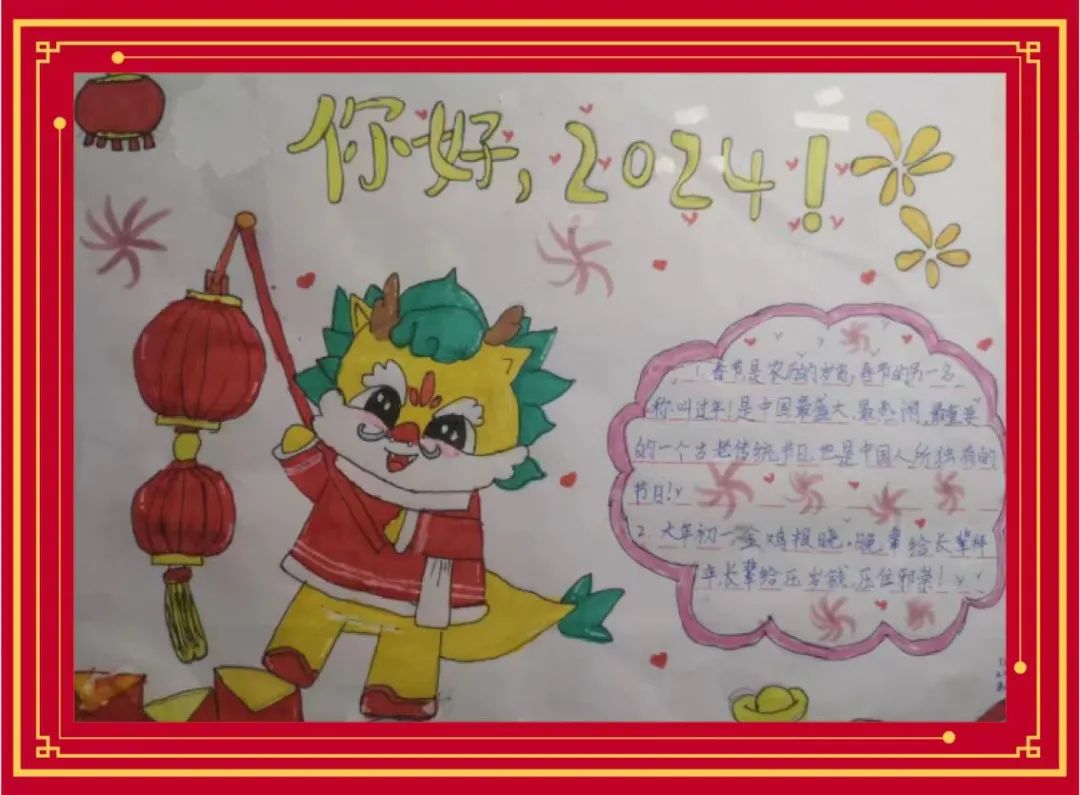 你好,2024!
1.春节是农历的岁首,春节的另一名
称.叫过年!是中国最盛大.最热闹.最重要
的一个古老传统节日.也是中国人所独有的
节日!
2.大年初一,金鸡报晓。晚辈给长辈拜
年,长辈给压岁钱,压住邪祟!